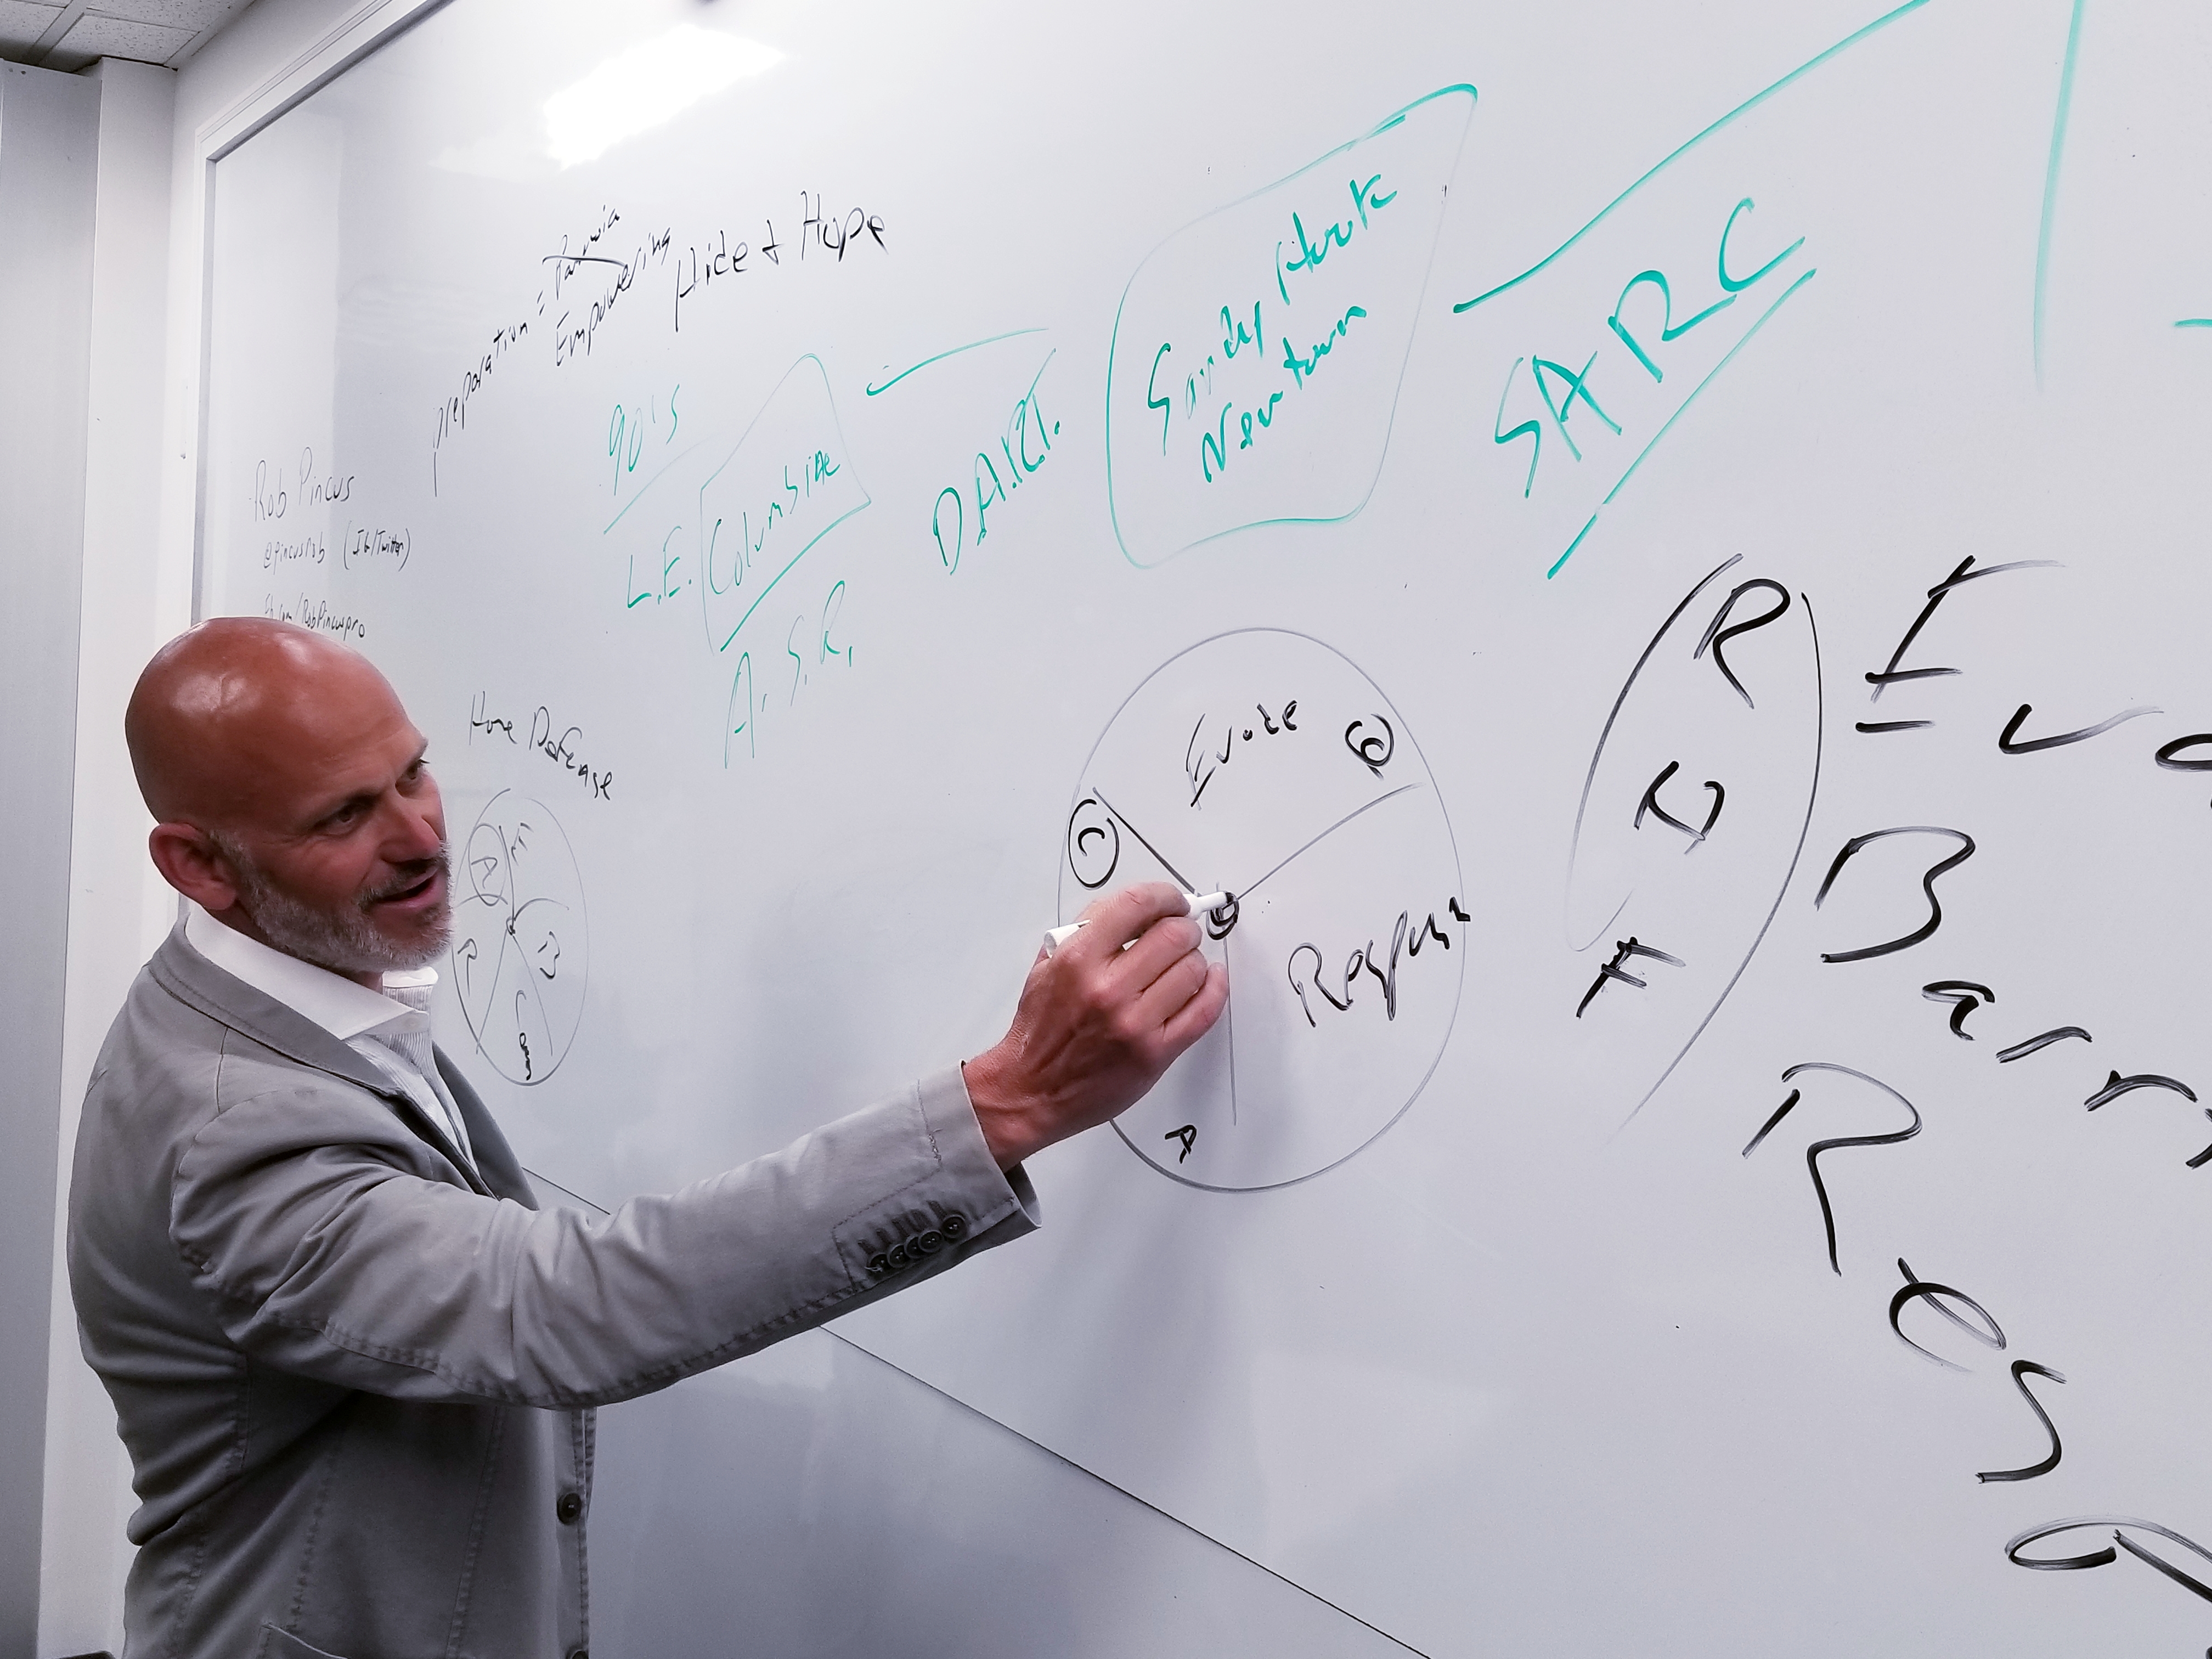 preparation = Paranoia
Empowering
Hide & Hope
Rob Pincus
@pincusrob (IG/Twitter)
fb.com/RobPincuspro
90's
L.E. Columbine
A.S.R.
D.A.R.T.
Sandy Hook
Newtown
SARC
Home Defense
A
Ev
R
B
Com
Evade
B
C
Respons
A
R
H
F
I
=
Ev
Barr
Res